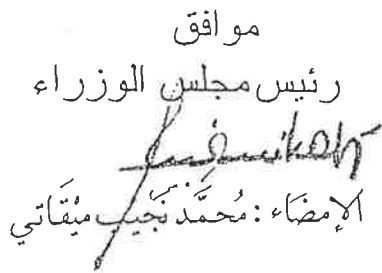 موافق
رئيس مجلس الوزراء
الإمضاء : محمَّد نَجيب ميْقَاتي